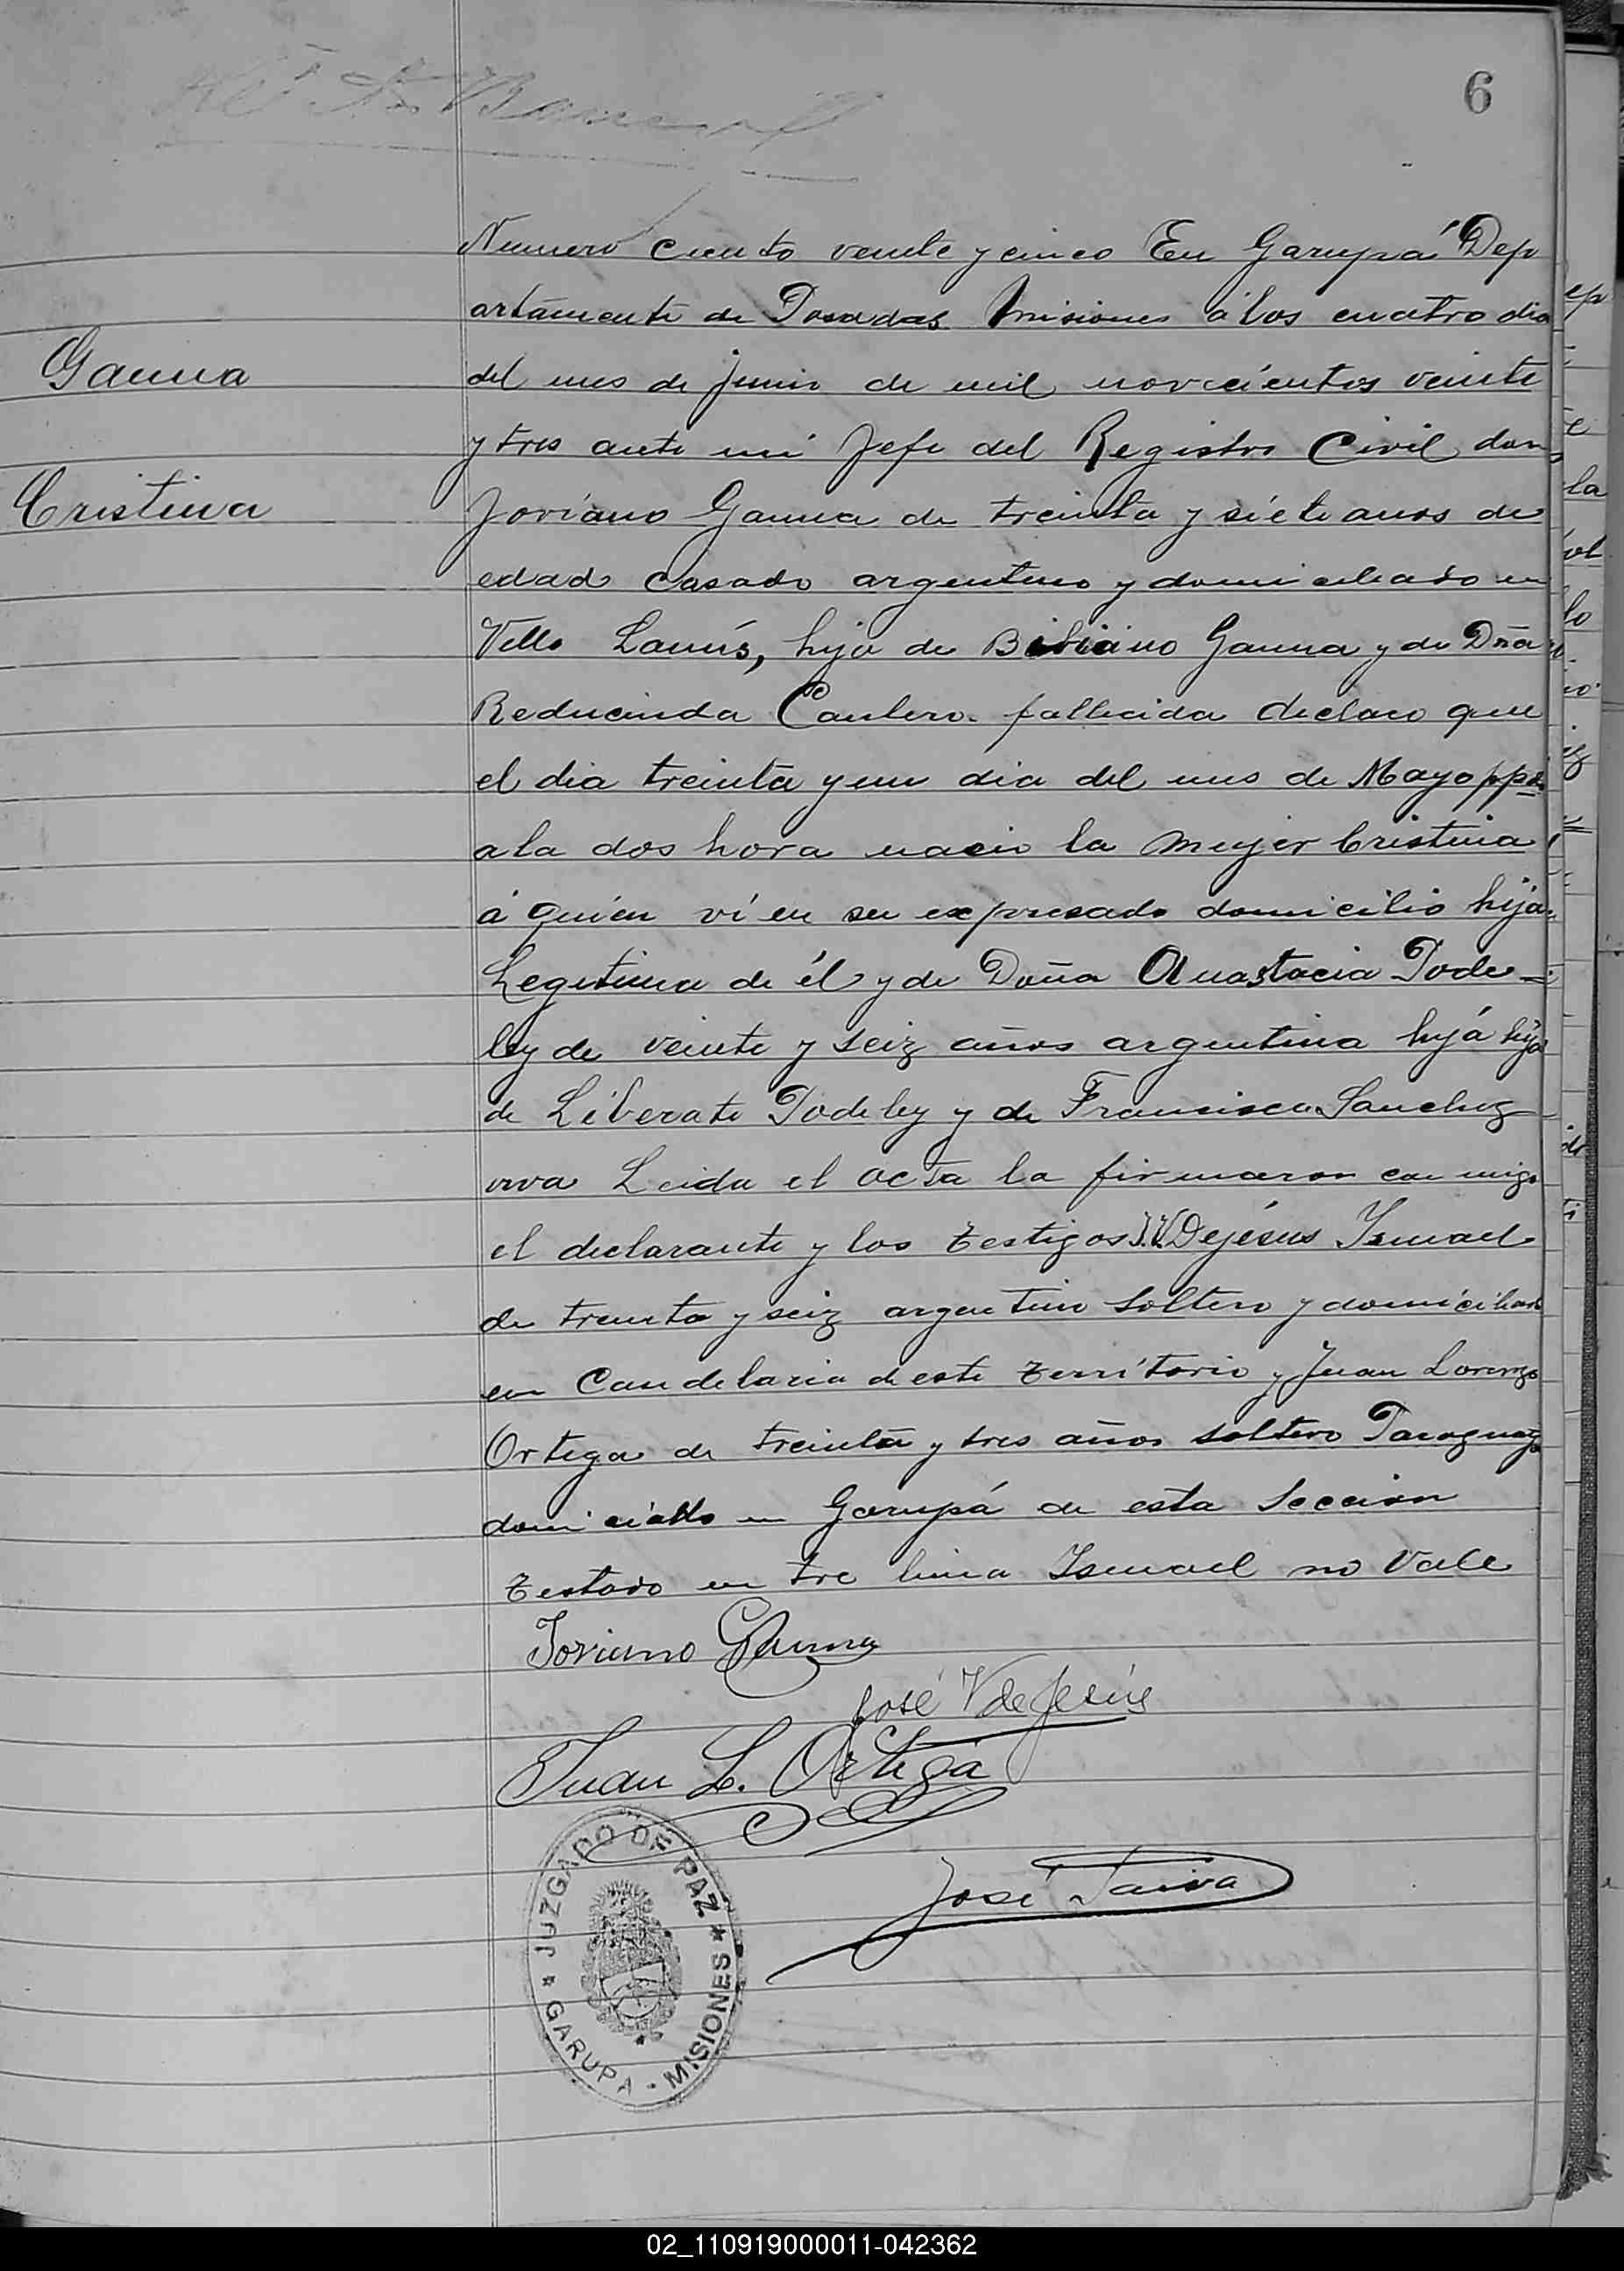 6
Numero ciento veinte y cinco En Garupá Dep
artamento de Posadas Misiones á los cuatro dia
Gauna
del mes de junio de mil novecientos veinte
y tres ante mi Jefe del Registro Civil don
Cristina
Joviano Gauna de treinta y siete anos de
edad casado argentino y domiciliado en
Villa Lanús, hijo de Bibiano Gauna y de Dña
Reducinda Cantero fallecida declaro que
el dia treinta y un dia del mes de Mayo ppdo
a la dos hora nacio la mujer Cristina
á quien ví en su expresado domicilio hija
Legitima de él y de Doña Anastacia Pode
ley de veinte y seiz años argentina hijá hija
de Liberato Podeley y de Francisca Sanchez
viva Leida el acta la firmaron con migo
el declarante y los testigos J.V. Dejésus Ismael
de treinta y seiz argentino soltero y domiciliado
en Candelaria deeste territorio y Juan Lorenzo
Ortega de treinta y tres años soltero Paraguayo
domiciado en Garupá de esta Seccion
testado en tre linia Ismael no vale
Joviano Gauna
José V de Jesús
Juan L. Ortega
José Paiva
JUZGADO DE PAZ
GARUPA - MISIONES
02_110919000011-042362